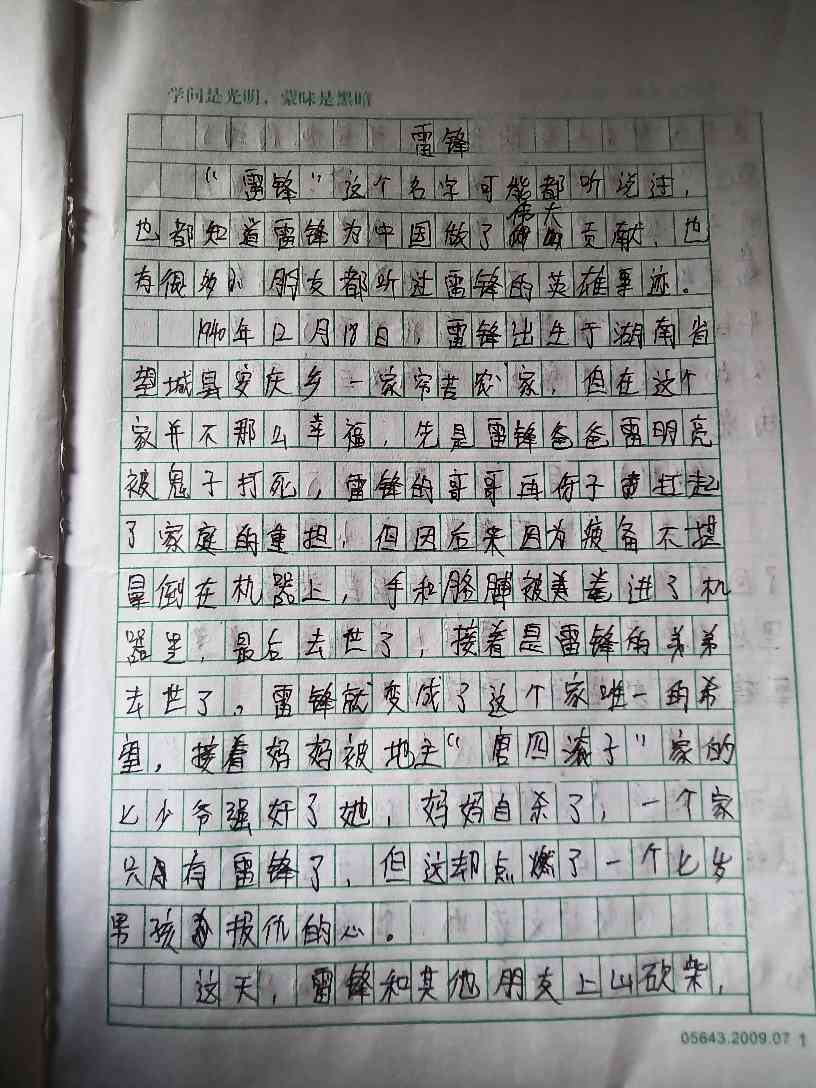 学问是光明，蒙昧是黑暗
雷锋
“雷锋”这个名字可能都听说过，
伟大
也都知道雷锋为中国做了贡献，也
有很多小朋友都听过雷锋的英雄事迹。
1940年12月18日，雷锋出生于湖南省
望城县安庆乡一家穷苦农家，但在这个
家并不那么幸福，先是雷锋爸爸雷明亮
被鬼子打死，雷锋的哥哥再份子扛起
了家庭的重担，但因后来因为疲备不堪
晕倒在机器上，手和胳膊被卷进了机
器里，最后去世了，接着是雷锋的弟弟
去世了。雷锋就变成了这个家唯一的希
望，接着妈妈被地主“唐四滚子”家的
七少爷强奸了她，妈妈自杀了，一个家
只有雷锋了，但这却点燃了一个七岁
男孩报仇的心。
这天，雷锋和其他朋友上山砍柴，
05643.2009.07 1